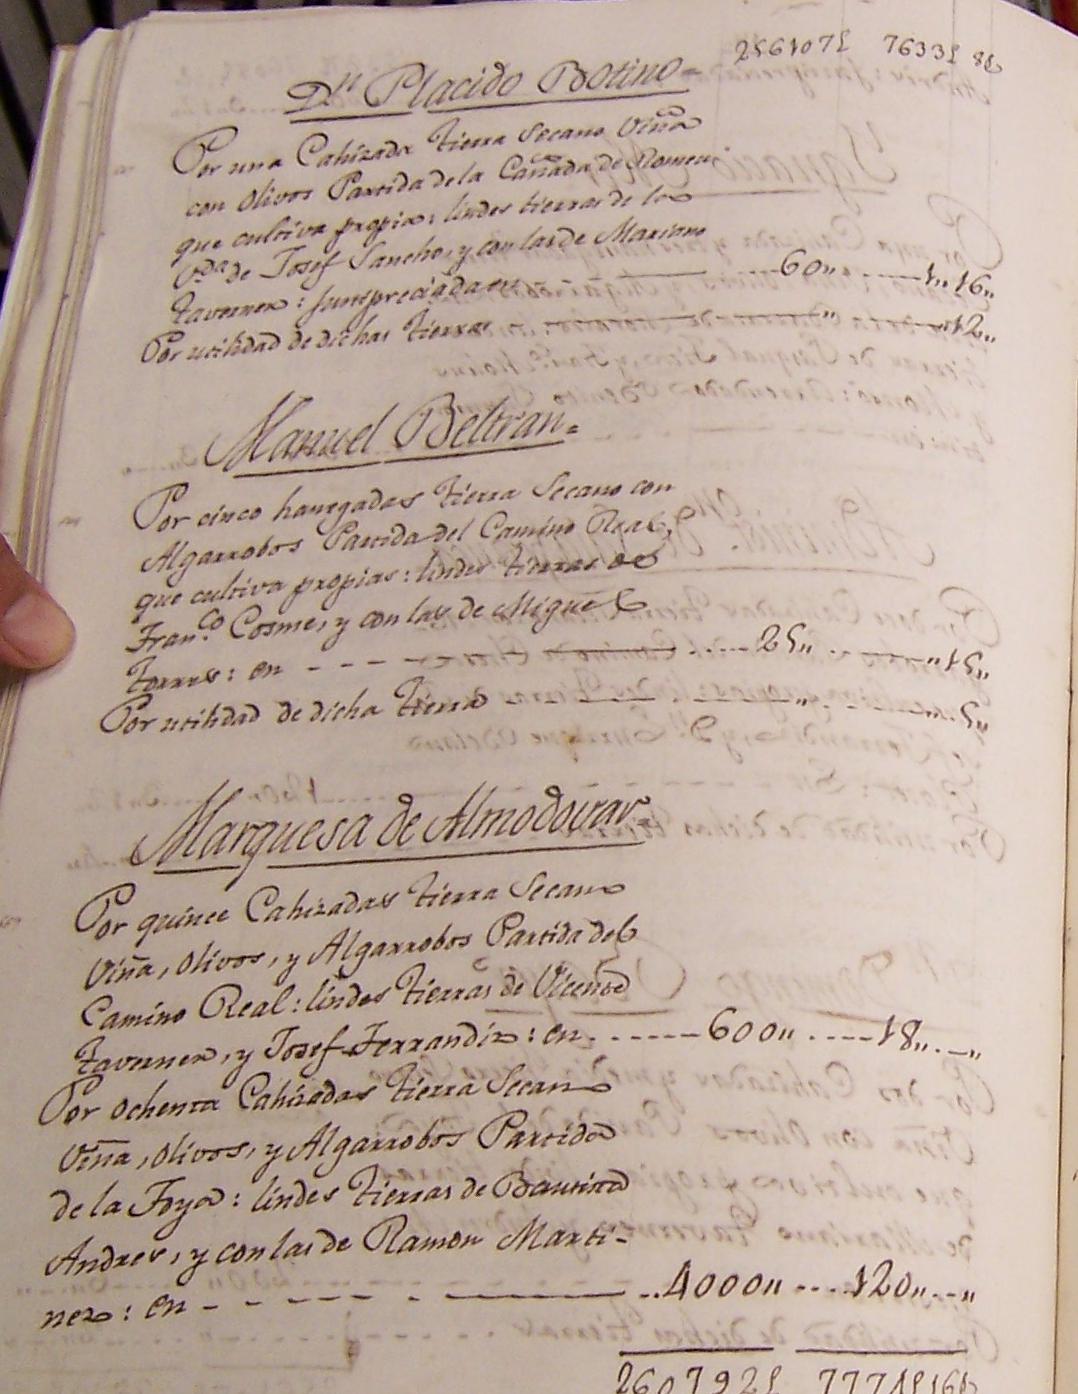 256107£ 7633£ 8s
Dn. Placido Botino=
Por una Cahizada tierra Secano Viña
con Olivos Partida de la Cañada de Romeu
que cultiva propia: lindes tierras de la
Vda. de Josef Sancho, y con las de Mariano
Taverner: justipreciada en 60,, 1,,16,,
Por utilidad de dichas tierras ,, ,,12,,
Manuel Beltran=
Por cinco hanegadas tierra Secano con
Algarrobos Partida del Camino Real,
que cultiva propias: lindes tierras de
Fran.co Cosme, y con las de Miguel
Torres: en 25,, ,,15,,
Por utilidad de dicha tierra ,, ,,5,,
Marquesa de Almodovar=
Por quince Cahizadas tierra Secano
Viña, Olivos, y Algarrobos Partida del
Camino Real: lindes tierras de Vicente
Taverner, y Josef Ferrandiz: en 600,, 18,, ,,
Por ochenta Cahizadas tierra Secano
Viña, Olivos, y Algarrobos Partida
de la Foya: lindes tierras de Bautista
Andres, y con las de Ramon Marti-
nez: en 4000,, 120,, ,,
260792£ 7774£16s